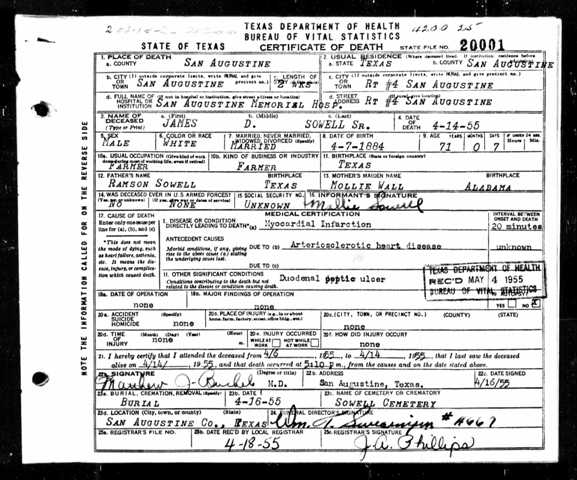 TEXAS DEPARTMENT OF HEALTH
BUREAU OF VITAL STATISTICS
STATE OF TEXAS CERTIFICATE OF DEATH STATE FILE NO. 20001
1. PLACE OF DEATH
a. COUNTY SAN AUGUSTINE
2. USUAL RESIDENCE (Where deceased lived. If institution: residence before admission)
a. STATE TEXAS b. COUNTY SAN AUGUSTINE
b. CITY (If outside corporate limits, write RURAL and give precinct no.) OR TOWN SAN AUGUSTINE
c. LENGTH OF STAY 2 WKS
c. CITY (If outside corporate limits, write RURAL and give precinct no.) OR TOWN RT #4 SAN AUGUSTINE
d. FULL NAME OF (If not in hospital or institution, give street address or location) HOSPITAL OR INSTITUTION SAN AUGUSTINE MEMORIAL HOSP.
d. STREET ADDRESS (If rural, give location) RT #4 SAN AUGUSTINE
3. NAME OF DECEASED (Type or Print) a. (First) JAMES b. (Middle) D. c. (Last) SOWELL SR. 4. DATE OF DEATH 4-14-55
5. SEX MALE 6. COLOR OR RACE WHITE 7. MARRIED, NEVER MARRIED, WIDOWED, DIVORCED (Specify) MARRIED 8. DATE OF BIRTH 4-7-1884 9. AGE YEARS 71 MONTHS 0 DAYS 7
10a. USUAL OCCUPATION (Give kind of work done during most of working life, even if retired) FARMER 10b. KIND OF BUSINESS OR INDUSTRY FARMER 11. BIRTHPLACE (State or foreign country) TEXAS
12. FATHER'S NAME RAMSON SOWELL BIRTHPLACE TEXAS 13. MOTHER'S MAIDEN NAME MOLLIE WALL BIRTHPLACE ALABAMA
14. WAS DECEASED EVER IN U.S. ARMED FORCES? NO NONE 15. SOCIAL SECURITY NO. UNKNOWN 16. INFORMANT'S SIGNATURE Mollie Sowell
17. CAUSE OF DEATH MEDICAL CERTIFICATION INTERVAL BETWEEN ONSET AND DEATH
Enter only one cause per line for (a), (b), and (c)
I. DISEASE OR CONDITION DIRECTLY LEADING TO DEATH* (a) Myocardial Infarction 20 minutes
*This does not mean the mode of dying, such as heart failure, asthenia, etc. It means the disease, injury, or complication which caused death.
ANTECEDENT CAUSES
Morbid conditions, if any, giving rise to the above cause (a) stating the underlying cause last.
DUE TO (b) Arteriosclerotic heart disease unknown
DUE TO (c)
II. OTHER SIGNIFICANT CONDITIONS
Conditions contributing to the death but not related to the disease or condition causing death.
Duodenal peptic ulcer
TEXAS DEPARTMENT OF HEALTH
REC'D MAY 4 1955
BUREAU OF VITAL STATISTICS
18a. DATE OF OPERATION none 18b. MAJOR FINDINGS OF OPERATION none YES NO
20a. ACCIDENT SUICIDE HOMICIDE none 20b. PLACE OF INJURY (e.g., in or about home, farm, factory, street, office bldg., etc.) none 20c. (CITY, TOWN, OR PRECINCT NO.) (COUNTY) (STATE) none
20d. TIME OF INJURY (Month) (Day) (Year) (Hour) none 20e. INJURY OCCURRED WHILE AT WORK NOT WHILE AT WORK 20f. HOW DID INJURY OCCUR? none
21. I hereby certify that I attended the deceased from 4/6 1955, to 4/14 1955 that I last saw the deceased
alive on 4/14/ 1955, and that death occurred at 5:10 P.m., from the causes and on the date stated above.
22a. SIGNATURE (Degree or title) M.D. 22b. ADDRESS San Augustine, Texas. 22c. DATE SIGNED 4/16/55
23a. BURIAL, CREMATION, REMOVAL (Specify) BURIAL 23b. DATE 4-16-55 23c. NAME OF CEMETERY OR CREMATORY SOWELL CEMETERY
23d. LOCATION (City, town, or county) (State) SAN AUGUSTINE CO., TEXAS 24. FUNERAL DIRECTOR'S SIGNATURE #4667
25a. REGISTRAR'S FILE NO. 25b. DATE REC'D BY LOCAL REGISTRAR 4-18-55 25c. REGISTRAR'S SIGNATURE J.A. Phillips
NOTE THE INFORMATION CALLED FOR ON THE REVERSE SIDE